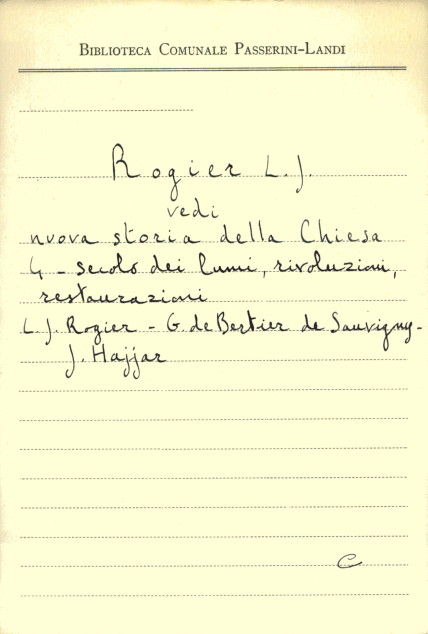 BIBLIOTECA COMUNALE PASSERINI-LANDI
Rogier L. J.
vedi
nuova storia della Chiesa
4 - secolo dei lumi, rivoluzioni,
restaurazioni
L. J. Rogier - G. de Bertier de Sauvigny -
J. Hajjar
C